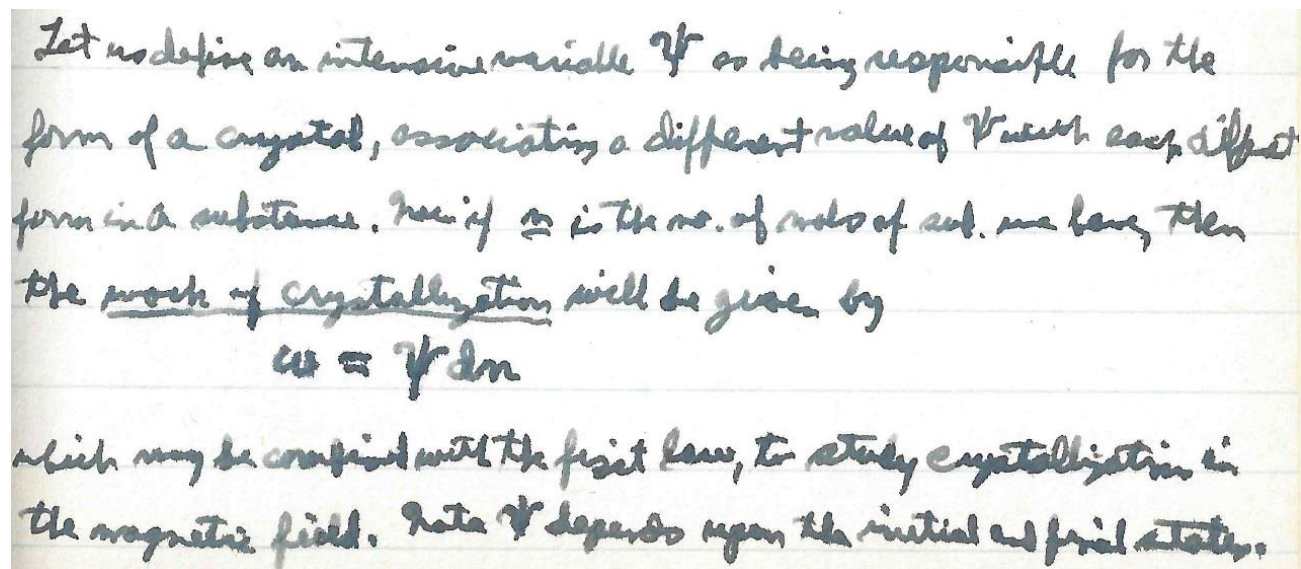 Let us define an intensive variable Ψ as being responsible for the
form of a crystal, associating a different value of Ψ with each different
form in a substance. Now if n is the no. of mols of sub. we have, then
the work of crystallization will be given by
w = Ψ dn
which may be combined with the first law, to study crystallization in
the magnetic field. Note Ψ depends upon the initial and final states.